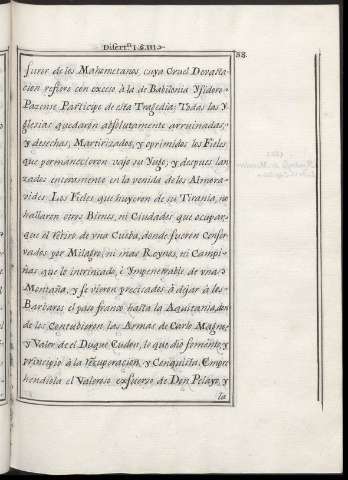 Disert.n I. §. III.
38.
furor de los Mahometanos, cuya Cruel Devasta
cion refiere con exceso à la de Babilonia Ysidoro
Pazense Participe de esta Tragedia; Todas las Y
glesias quedaron absolutamente arruinadas,
y desechas; Martirizados, y oprimidos los Fieles
que permanecieron vajo su Yugo; y despues lan
zados enteramente en la venida de los Almora
vides. Los Fieles que huyeron de su Tirania, no
hallaron otros Bienes, ni Ciudades que ocupar,
que el Retiro de una Cueba, donde fueron Conser
vados por Milagro; ni mas Reynos, ni Campi
ñas que lo intrincado, è Ympenetrable de una
Montaña, y se vieron precisados à dejar à los
Barbaros el paso franco hasta la Aquitania, don
de los Contubieron las Armas de Carlo Magno,
y Valor de el Duque Eudon, lo que diò fomento, y
principio à la recuperacion, y Conquista. Empre
hendiola el Valeroso exfuerzo de Don Pelayo, y
la